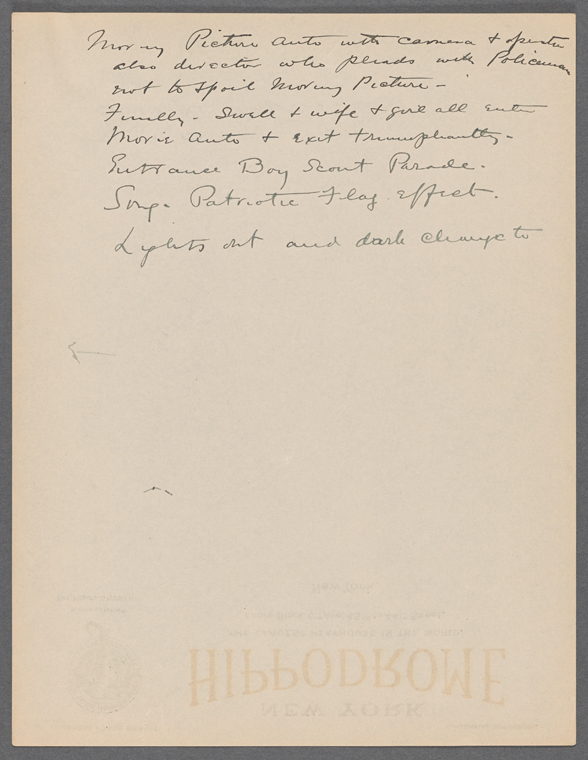 Moving Picture Auto with camera & operator
also director who pleads with Policeman
not to spoil Moving Picture -
Finally - Swell & wife & girl all enter
Movie Auto & exit triumphantly -
Entrance Boy Scout Parade -
Song - Patriotic Flag effect.
Lights out and dark change to
New York
HIPPODROME
NEW YORK